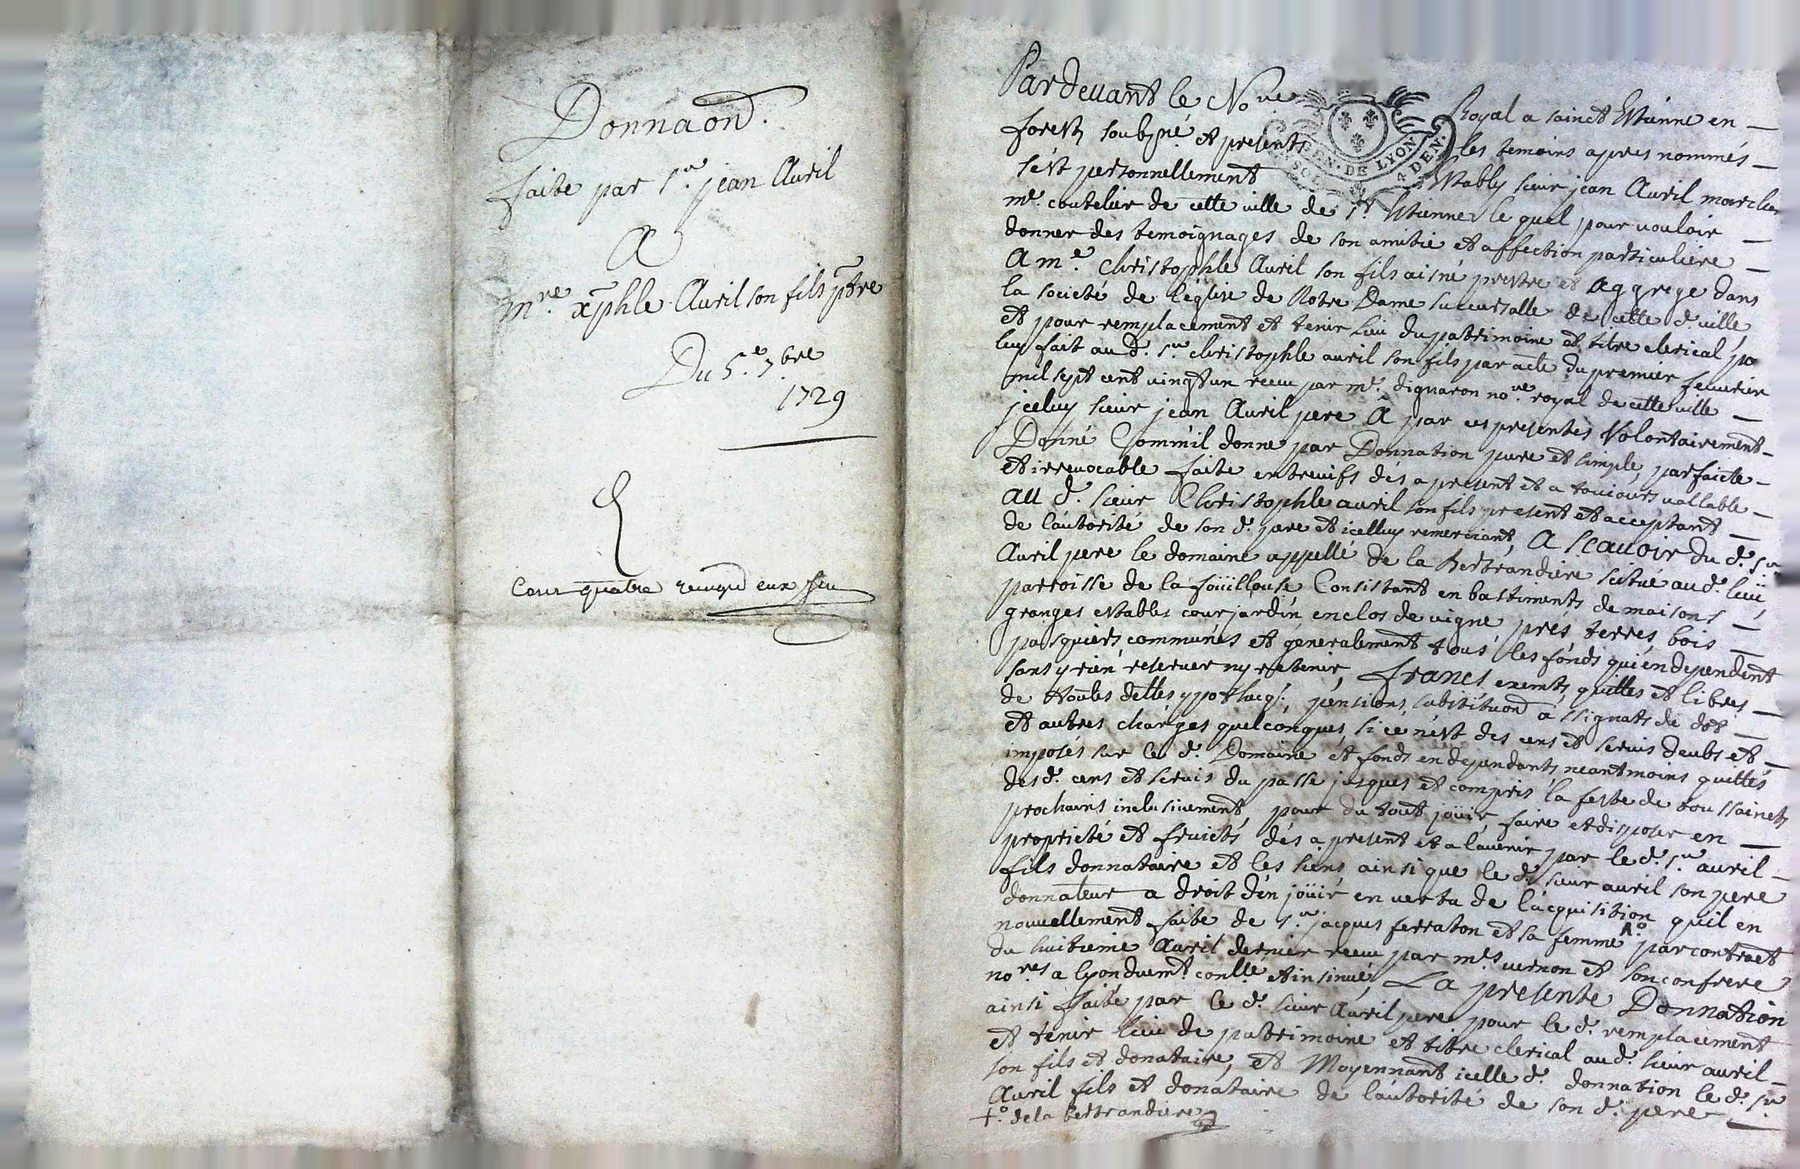 Donnaon.
faite par Sr. jean Auril
A
mre. xphle. Auril son fils pbre
Du 5e. 7bre
1729
Cour quatre
GEN. DE LYON
SOLS 4 DEN.
Pardeuant le Nore Royal a sainct Etienne en
forests soubsné et presents les temoins apres nommés
s'est personnellement Estably sieur jean Auril
me. coutelier de cette ville de St. Etienne le quel pour vouloir
donner des temoignages de son amitie et affection particuliere
A me. Christophle Auril son fils aisné prestre et aggregé dans
la societé de l'église de Notre Dame succursalle de cette d. ville
et pour remplacement et tenir lieu du patrimoine et titre clerical
luy fait au d. sr. christophle auril son fils par acte du premier feurier
mil sept cent vingt un receu par me. digaron nore. royal de cette ville
jceluy sieur jean Auril pere A par ces presentes Volontairement
Donné Comm'il donne par Donnation pure et simple, parfaicte
et irreuocable faite entreuifs dés a present et a toujours vallable
au d. sieur Christophle auril son fils present et acceptant
de l'autorité de son d. pere et icelluy remerciant, A Scauoir du d. sr
Auril pere le domaine appellé de la Bertrandiere scitué au d. lieu
parroisse de la foüillouse Consistant en bastiments de maisons
granges estables cour jardin enclos de vigne prés terres bois
pasquiers communes et generalement tous les fonds qui en dependent
sans y rien reseruer ny retenir, francs exempts quittes et libres
de toutes dettes ypothecqs. pensions substituon assignats de dot
et autres charges quelconques, si ce n'est des cens et seruis deubs et
imposés sur le d. Domaine et fonds en dependants neantmoins quittes
des d. cens et seruis du passé jusques et compris la feste de toussaints
prochains inclusiuement pour du tout joüir faire et disposer en
proprieté et fruicts dés a present et a l'auenir par le d. sr auril
fils donnataire et les siens ainsi que le d. sieur auril son pere
donnateur a droit d'en joüir en vertu de l'acquisition qu'il en
nouuellement faite de sr. jacques ferraton et sa femme par contract
du huitieme Auril dernier receu par mes. vernon et son confrere
nores a lyon duemt conlle et insinué La presente Donnation
ainsi faite par le d. sieur Auril pere pour le d. remplacement
et tenir lieu de patrimoine et titre clerical au d. sieur auril
son fils et donataire, et Moyennant icelle d. donnation le d. sr
Auril fils et donataire de l'autorité de son d. pere
+o. de la bertrandiere